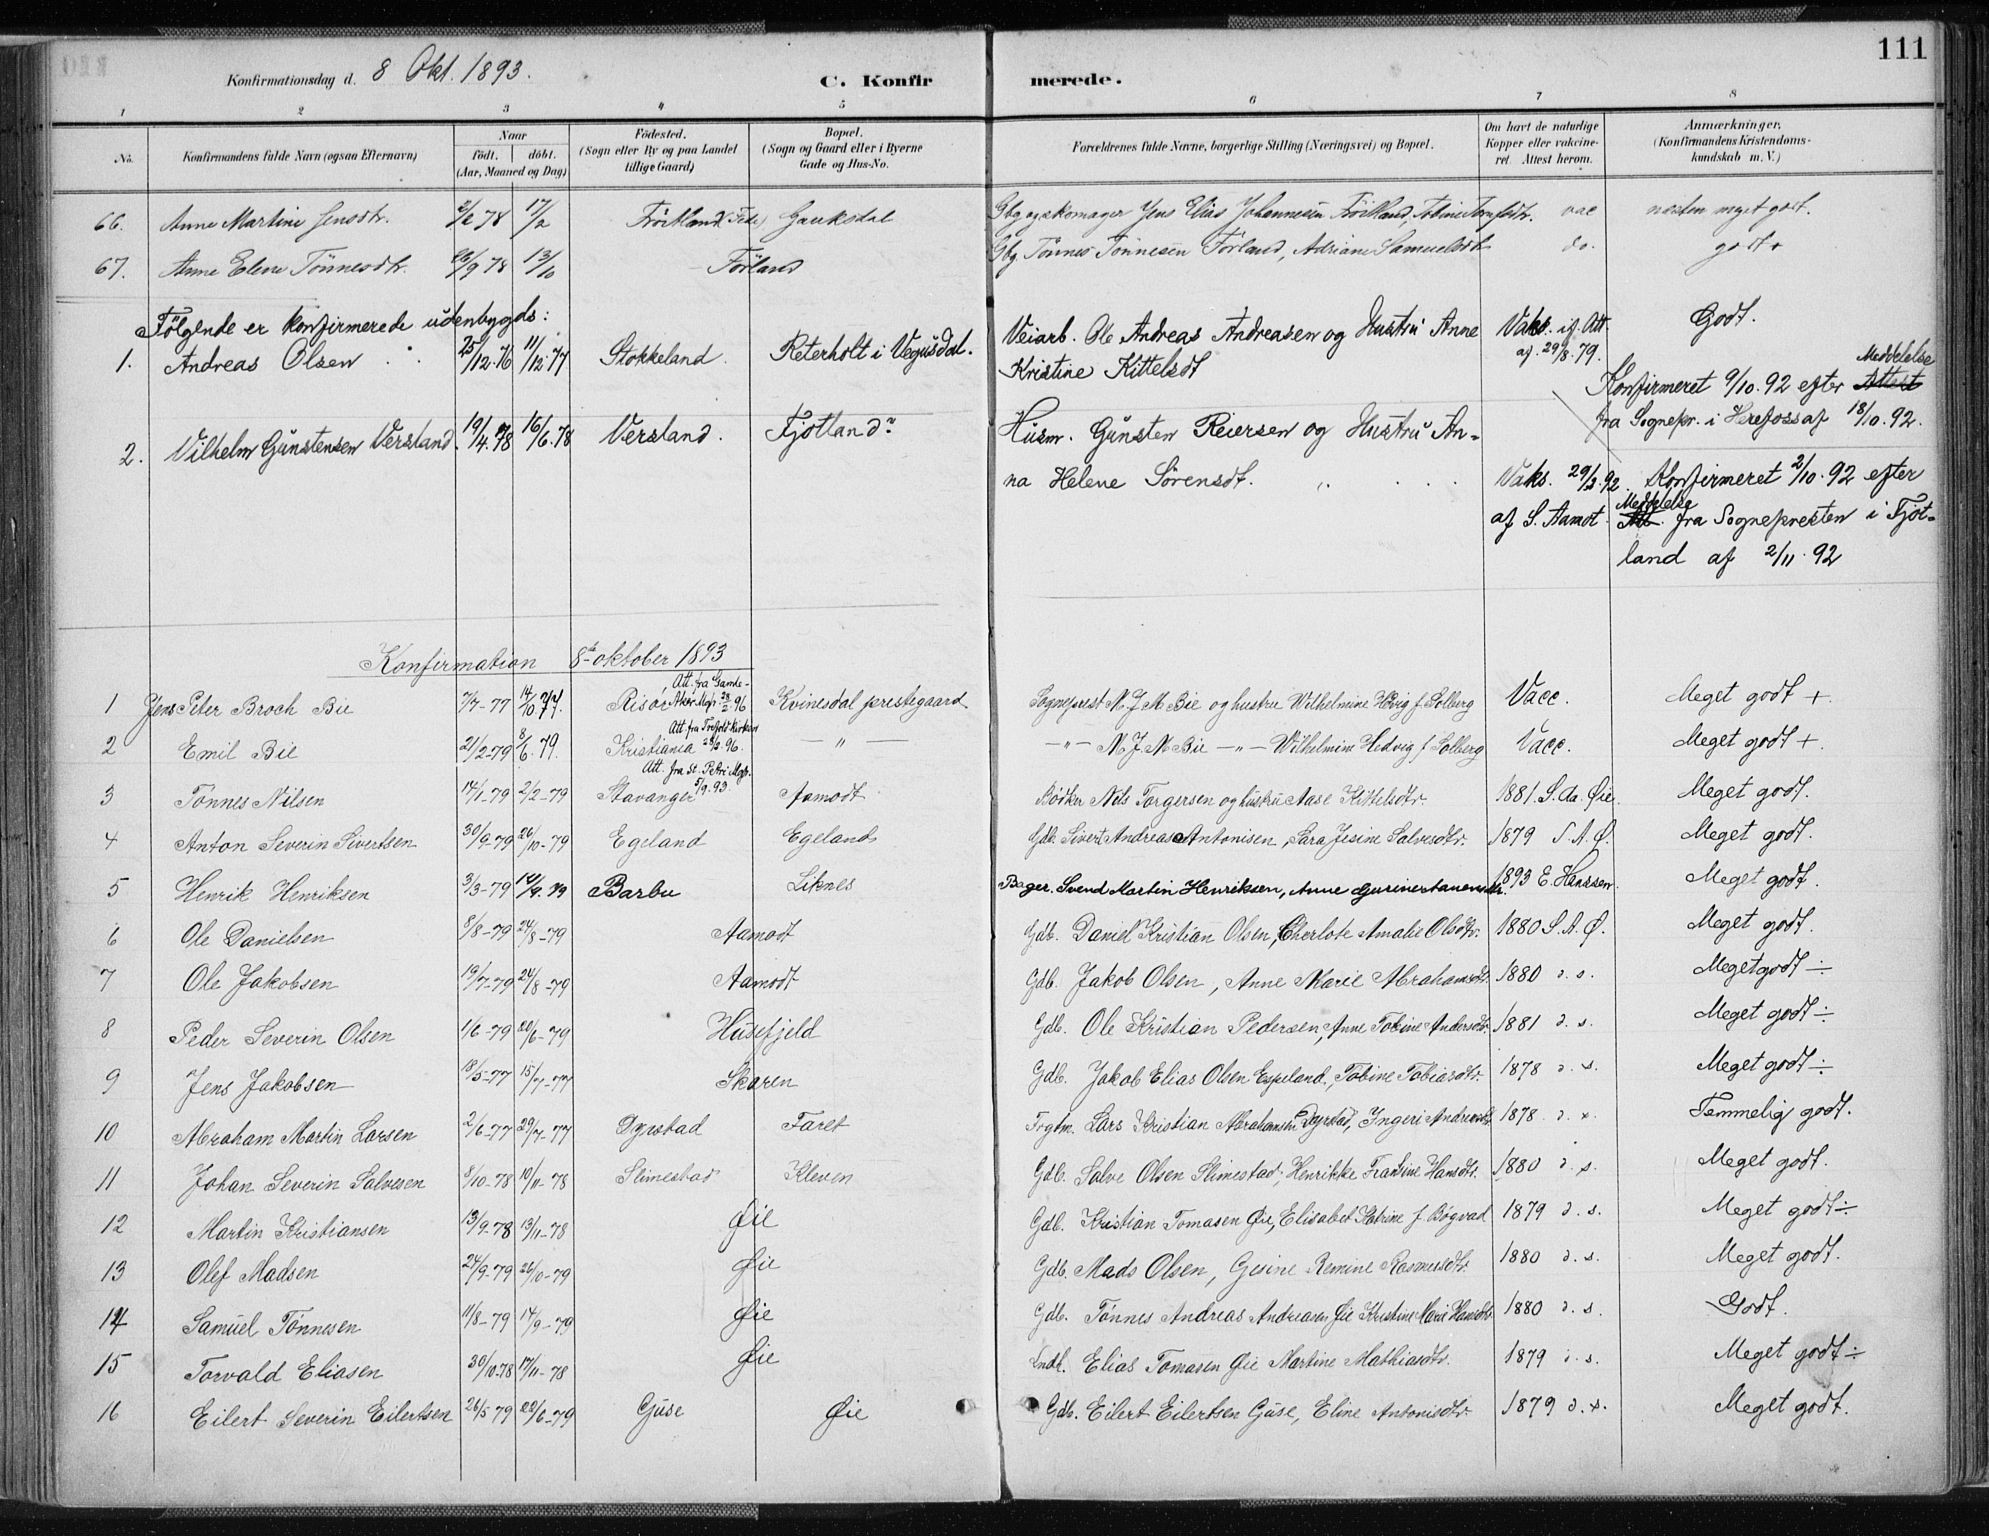 111
Konfirmationsdag d. 8 Okt. 1893. C. Konfir merede.
1 2 3 4 5 6 7 8
No. Konfirmandens fulde Navn (ogsaa Efternavn) Naar födt. döbt. (Aar, Maaned og Dag) Födested. (Sogn eller By og paa Landet tillige Gaard) Bopæl. (Sogn og Gaard eller i Byerne Gade og Hus-No. Forældrenes fulde Navne, borgerlige Stilling (Næringsvei) og Bopæl. Om havt de naturlige Kopper eller vaccineret. Attest herom. Anmærkninger. (Konfirmandens Kristendomskundskab m. V.)
66. Anne Martine Jensdtr. 2/2 78 17/2 Fröitland (Fede) Gauksdal Gbg og skomager Jens Elias Johannesen Fröitland, vac næsten meget godt.
67. Anne Elene Tönnesdtr. 26/9 78 13/10 Förland Gbg Tönnes Tönnesen Förland, Adriane Samuelsdtr do. godt
Fölgende er konfirmerede udenbygds:
1. Andreas Olsen 25/12.76 11/12.77 Stokkeland. Reterholt i Vegusdal. Veiarb. Ole Andreas Andreasen og Hustru Anne Vaks. if. Att. Godt.
Kristine Kittelsdt af 29/8.79. Konfirmeret 9/10.92 efter Attest Meddelelse
fra Sognepr. i Herefoss af 18/10.92.
2. Vilhelm Gunstensen Versland. 19/4.78 16/6.78 Versland. Fjotland. Husm. Gunsten Reiersen og Hustru An-
na Helene Sörensdt. Vaks. 29/3.92. Konfirmeret 2/10.92 efter
af S. Aamot Att. Meddelelse fra Sognepresten i Fjot-
land af 2/11.92
Konfirmation 8de oktober 1893
1 Jens Peter Broch Bie 7/7-77 14/10 77. Risör Att. fra Gamle Akers Mgh. 28/2.96 Kvinesdal prestegaard Sogneprest N J M Bie og hustru Wilhelmine Hedvig f Solberg Vacc. Meget godt +.
2 Emil Bie 21/2-79 8/6.79. Kristiania — " — — " — N. J M Bie — " — Wilhelmine Hedvig f Solberg Vacc. Meget godt +.
3 Tönnes Nilsen 14/1-79 2/2-79 Stavanger Att. fra St. Petri Mgh. 5/9.93. Aamodt Bödker Nils Torgersen og hustru Aase Kittelsdtr. 1881. S. Aa. Øie. Meget godt.
4 Anton Severin Sivertsen 30/9-79 26/10-79 Egeland Egeland Gdb. Sivert Andreas Antonisen, Sara Jesine Salvesdtr. 1879 S. A. Ø. Meget godt.
5 Henrik Henriksen 3/3-79 14/9.79 Barbu Liknes Bager. Svend Martin Henriksen, Anne 1893 E. Hanssen. Meget godt.
6 Ole Danielsen 8/8-79 24/8-79 Aamodt Gdb. Daniel Kristian Olsen, Cherlote Amalie Olsdtr. 1880 S. A. Ø. Meget godt.
7 Ole Jakobsen 19/7-79 24/8-79 Aamodt Gdb. Jakob Olsen, Anne Marie Abrahamsdtr. 1880 d. s. Meget godt ÷
8 Peder Severin Olsen 1/6-79 20/6-79 Husefjeld Gdb. Ole Kristian Pedersen, Anne Tobine Andersdtr. 1881 d. s. Meget godt ÷
9 Jens Jakobsen 18/5-77 15/7-77 Skaren Gdb. Jakob Elias Olsen Espeland, Tobine Tobiasdtr. 1878 d. s. Meget godt ÷
10 Abraham Martin Larsen 2/6-77 29/7-77 Dyrstad Faret Frgtm. Lars Kristian Abrahamsen Dyrstad, Ingeri Andreasdtr 1878 d. s. Temmelig godt.
11 Johan Severin Salvesen 8/10-78 10/11-78 Slimestad Kleven Gdb. Salve Olsen Slimestad, Henrikke Fransine Hansdtr. 1880 d. s. Meget godt.
12 Martin Kristiansen 13/9-78 13/11-78 Øie Gdb. Kristian Tomasen Øie, Elisabet Katrine f Bøgvad 1879 d. s. Meget godt ÷
13 Olef Madsen 24/9-79 26/10-79 Øie Gdb. Mads Olsen, Gesine Remine Rasmusdtr. 1880 d. s. Meget godt.
14 Samuel Tönnesen 11/8-79 14/9-79 Øie Gdb. Tönnes Andreas Andreasen Øie Kristine Marie Hansdtr 1880 d. s. Godt.
15 Torvald Eliasen 30/10-78 17/11-78 Øie Indt. Elias Tomasen Øie Martine Mathiasdtr. 1879 d. s. Meget godt ÷
16 Eilert Severin Eilertsen 26/5 79 22/6-79 Gjuse Øie Gdb. Eilert Eilertsen Gjuse, Eline Antonisdtr. 1879 d. s. Meget godt.